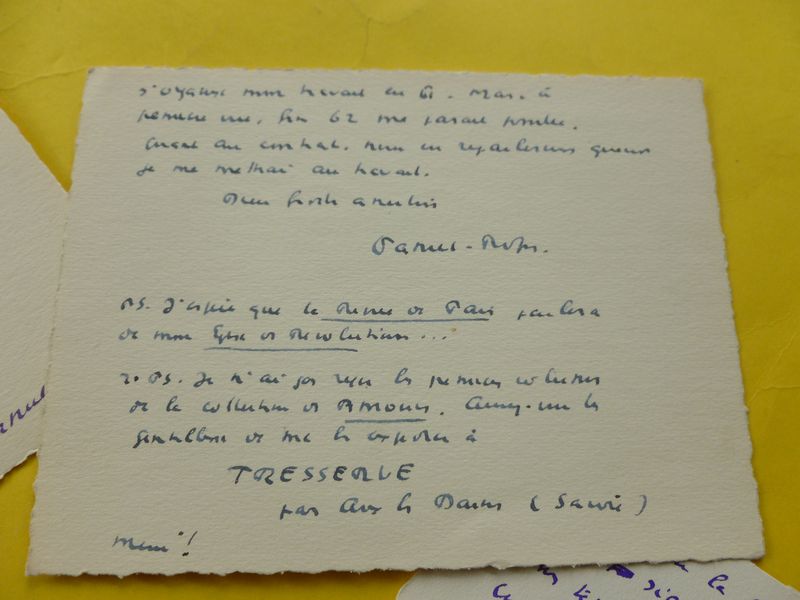 j'organise mon travail en 61. Mais, à
première vue, fin 62 me parait possible.
Quant au contrat, nous en reparlerons quand
je me mettrai au travail.
Bien fidèles amitiés
Daniel-Rops.
PS. J'espère que la Revue de Paris parlera
de mon Eglise des Révolutions...
2e PS. Je n'ai pas reçu les premiers volumes
de la collection des Amours. Auriez-vous la
gentillesse de me les expédier à
TRESSERVE
par Aix les Bains (Savoie)
Merci!
la